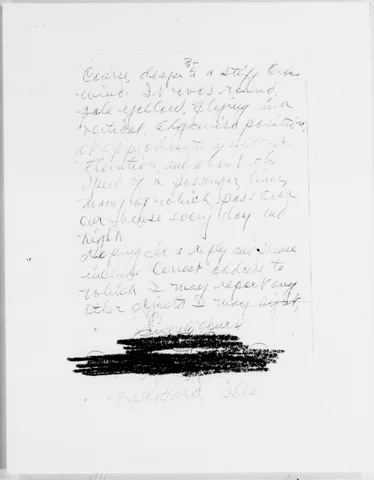 3-
Course, despite a stiff
wind. It was round,
pale yellow, flying in a
vertical, edgewise position,
at approximately
elevation, and about the
speed of a passenger liner,
many of which pass over
our house every day and
night.
Hoping for a reply and please
include correct address to
which I may report any
other objects I may sight,
Sincerely Yours
Rockford, Ills